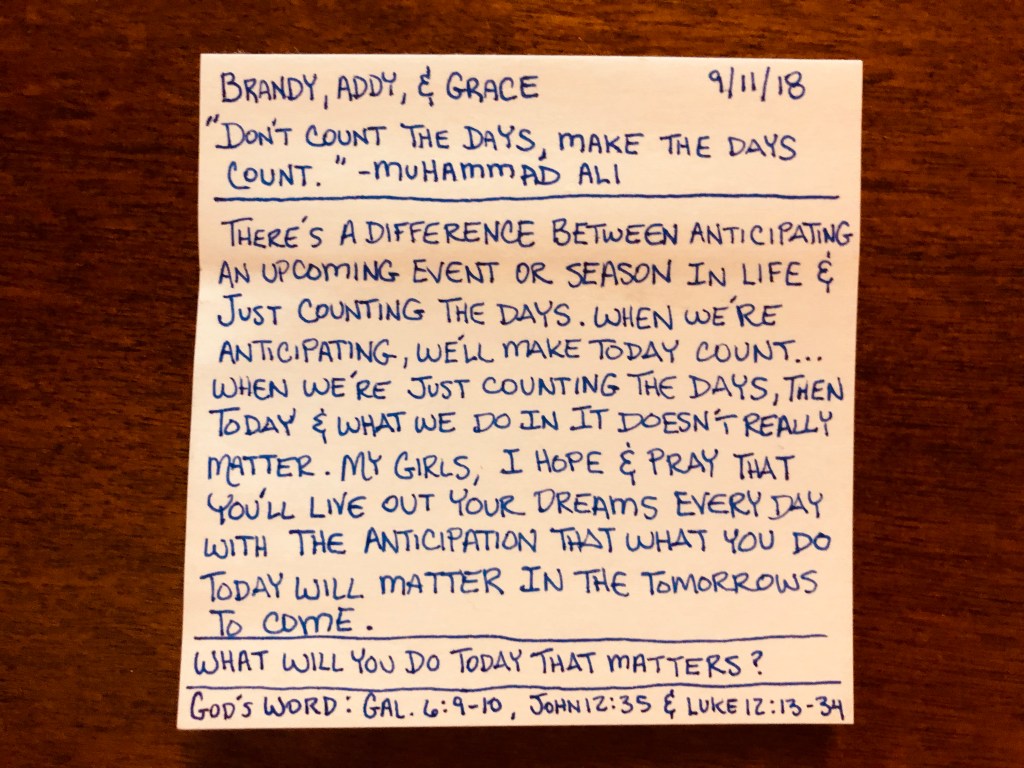 BRANDY, ADDY, & GRACE 9/11/18
"DON'T COUNT THE DAYS, MAKE THE DAYS
COUNT." -MUHAMMAD ALI
THERE'S A DIFFERENCE BETWEEN ANTICIPATING
AN UPCOMING EVENT OR SEASON IN LIFE &
JUST COUNTING THE DAYS. WHEN WE'RE
ANTICIPATING, WE'LL MAKE TODAY COUNT...
WHEN WE'RE JUST COUNTING THE DAYS, THEN
TODAY & WHAT WE DO IN IT DOESN'T REALLY
MATTER. MY GIRLS, I HOPE & PRAY THAT
YOU'LL LIVE OUT YOUR DREAMS EVERY DAY
WITH THE ANTICIPATION THAT WHAT YOU DO
TODAY WILL MATTER IN THE TOMORROWS
TO COME.
WHAT WILL YOU DO TODAY THAT MATTERS?
GOD'S WORD: GAL. 6:9-10, JOHN 12:35 & LUKE 12:13-34